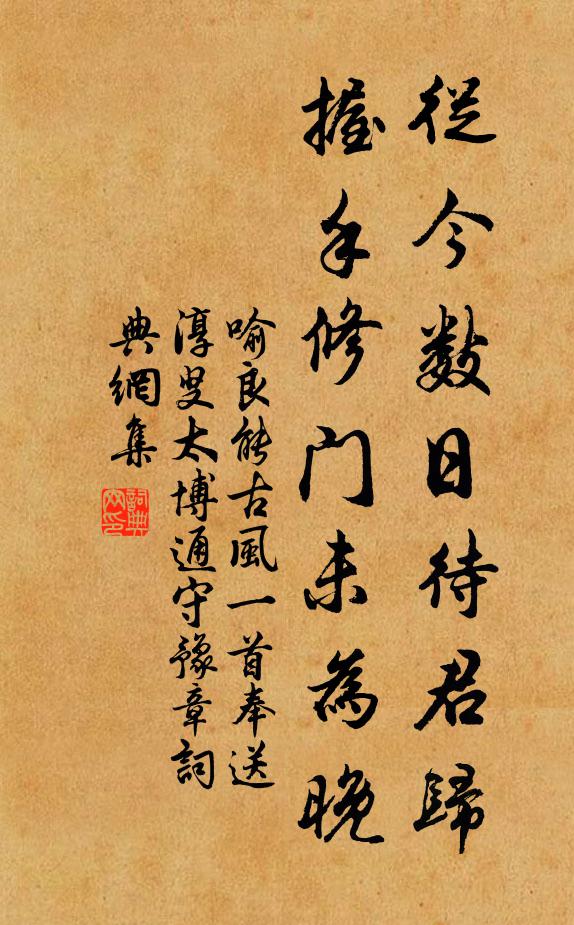 從今數日待君歸
握手修門未為晚
喻良能古風一首奉送
淳叟太博通守豫章詞
典網集
詞典網印